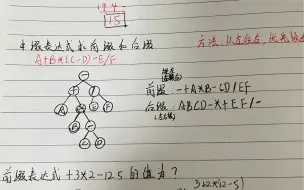 19.4
15
中缀表达式求前缀和后缀
方法:从左往左,优先级
A+B*(C-D)-E/F
-
+ /
A * E F
B -
C D
前缀:-+A*B-CD/EF
后缀:ABCD-*+EF/-
(左右根)
前缀表达式+3*2-125的值为?
3*(2*(12-5)